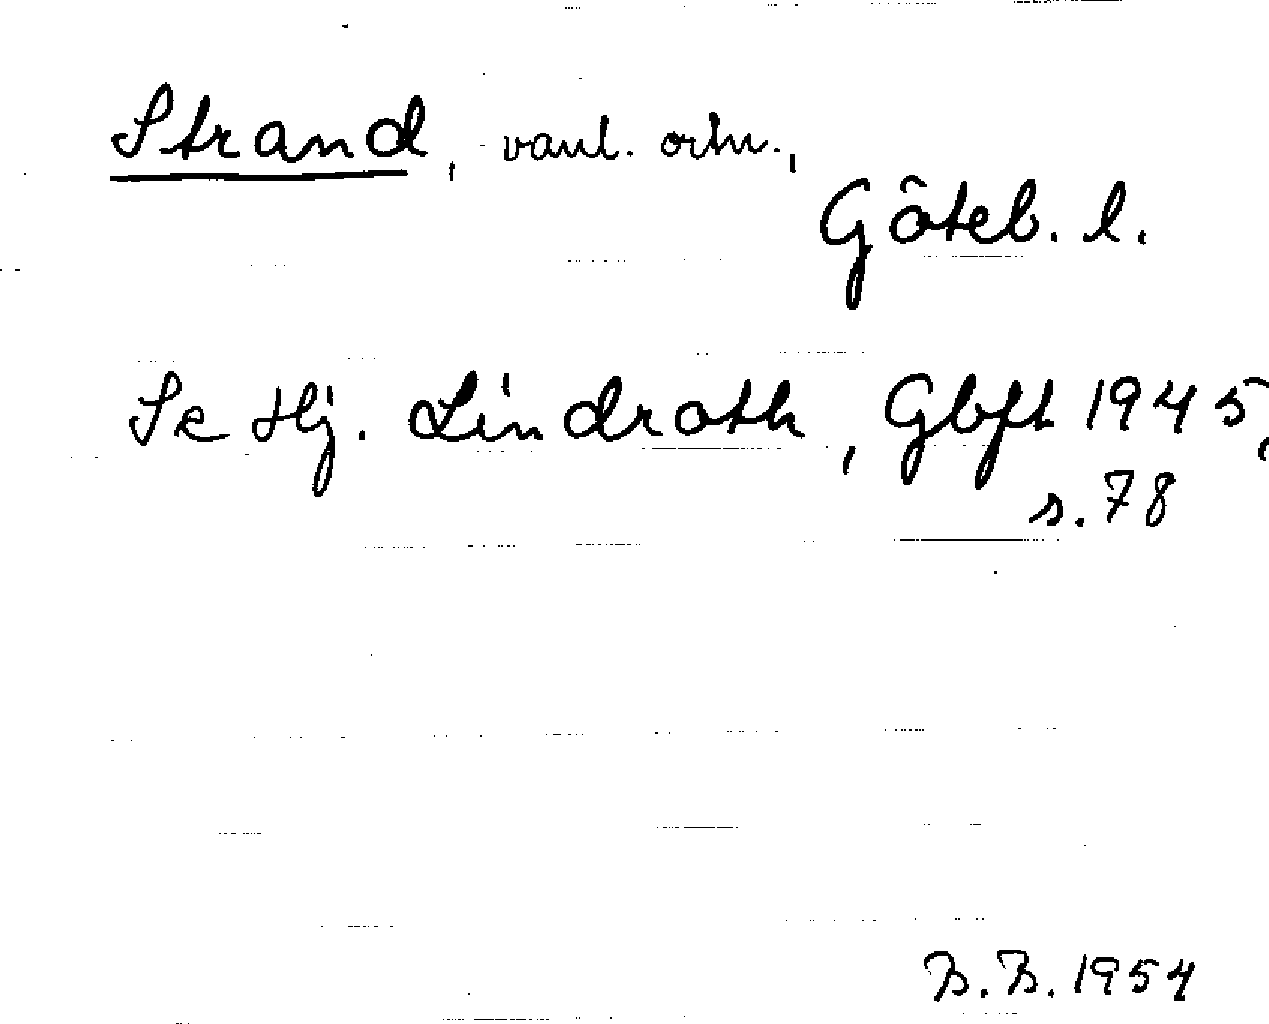 Strand, vanl. ortn.,
Göteb. l.
Se Hj. Lindroth, Gbft 1945,
s. 78
B.B. 1954